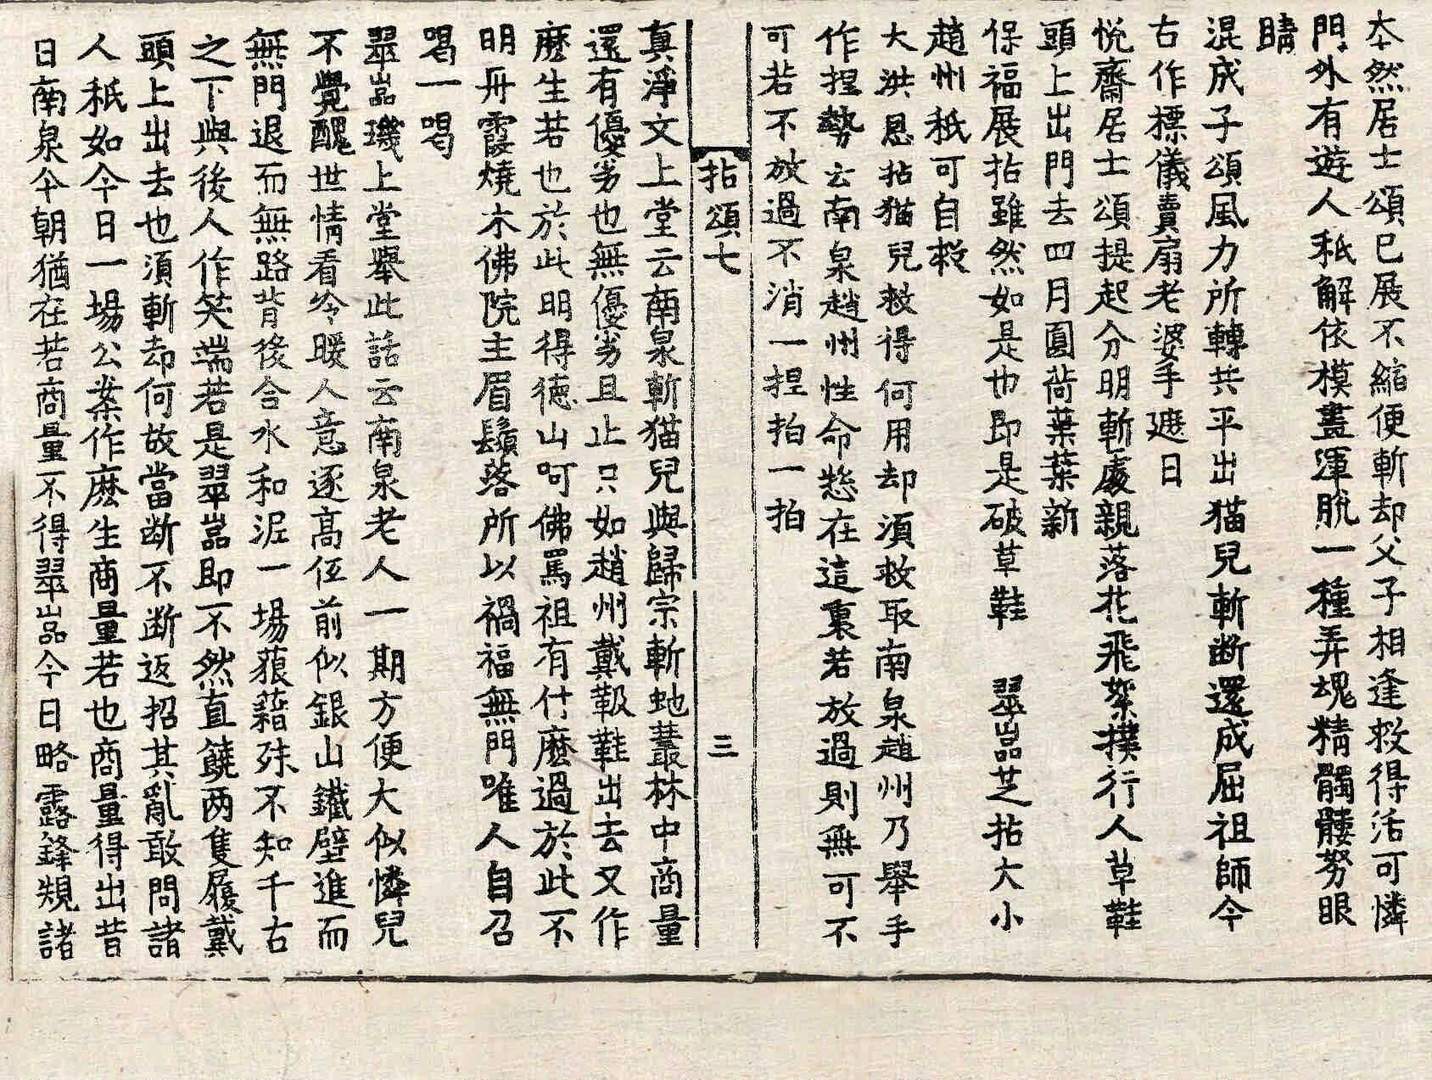 本然居士頌已展不縮便斬却父子相逢救得活可憐
門外有遊人秖解依模畫渾脫一種弄塊精髑髏努眼
睛
混成子頌風力所轉共平出猫兒斬断還成屈祖師今
古作標儀賣扇老婆手遮日
悅齋居士頌提起分明斬處親落花飛絮撲行人草鞋
頭上出門去四月圓荷葉葉新
保福展拈雖然如是也即是破草鞋　翠嵓芝拈大小
趙州秖可自救
大洪恩拈猫兒救得何用却須救取南泉趙州乃舉手
作捏勢云南泉趙州性命惣在這裏若放過則無可不
可若不放過不消一捏拍一拍
拈頌七　三
真淨文上堂云南泉斬猫兒與歸宗斬虵叢林中商量
還有優劣也無優劣且止只如趙州戴靸鞋出去又作
麽生若也於此明得德山呵佛罵祖有什麽過於此不
明丹霞燒木佛院主眉鬚落所以禍福無門唯人自召
喝一喝
翠嵓璣上堂舉此話云南泉老人一期方便大似憐兒
不覺醜世情看冷暖人意逐高低前似銀山鐵壁進而
無門退而無路背後合水和泥一場狼藉殊不知千古
之下與後人作笑端若是翠嵓即不然直饒两隻履戴
頭上出去也須斬却何故當断不断返招其亂敢問諸
人秖如今日一場公案作麽生商量若也商量得出昔
日南泉今朝猶在若商量不得翠嵓今日略露鋒規諸